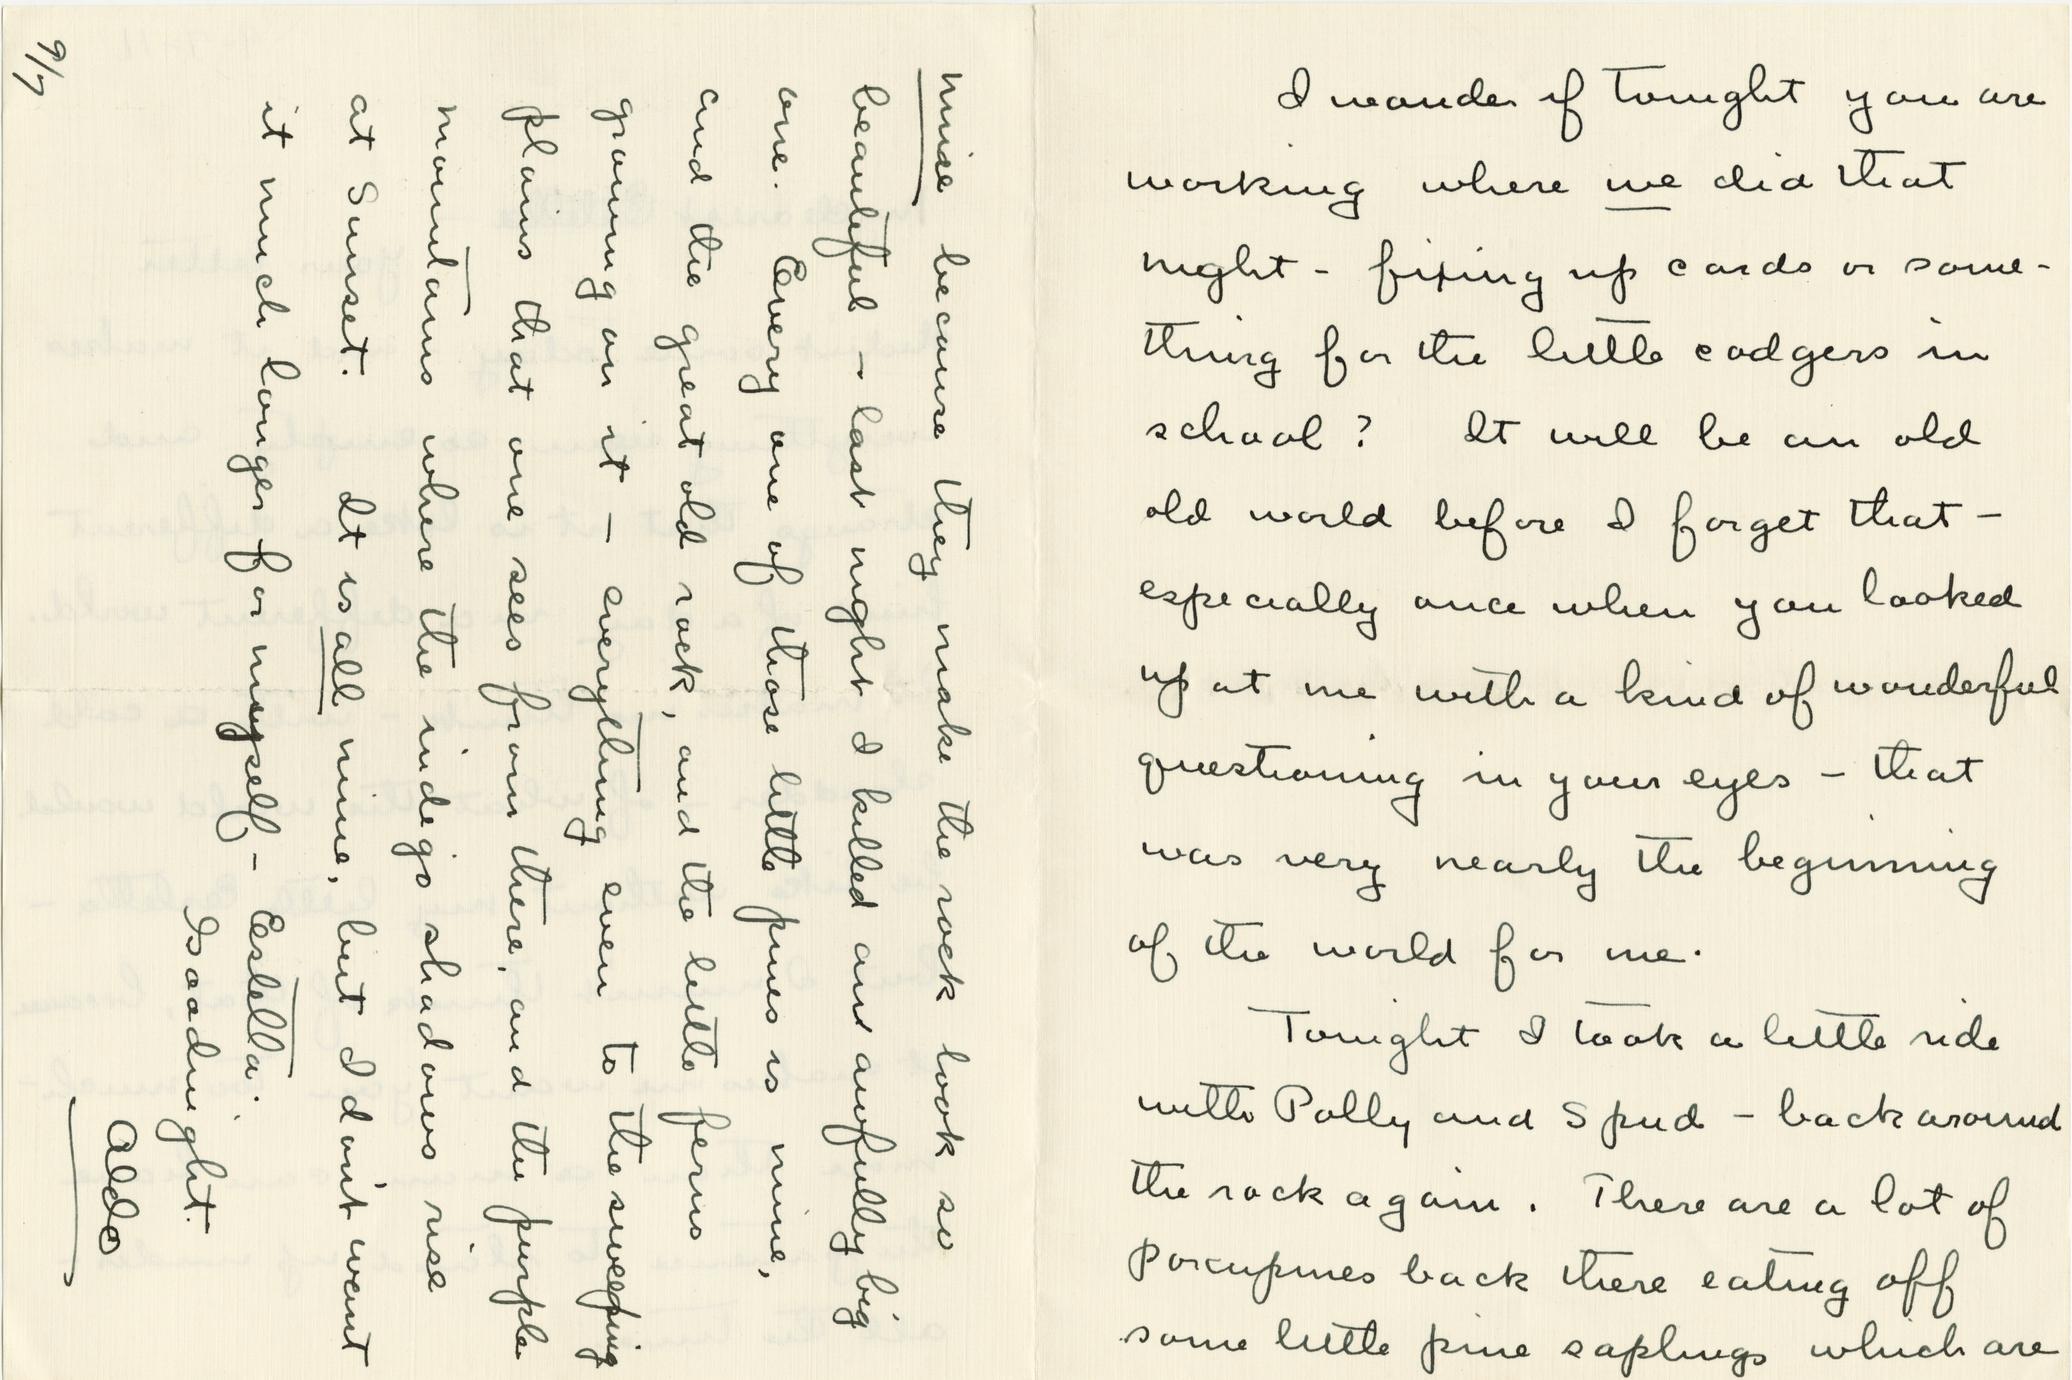 I wonder if tonight you are
working where we did that
night - fixing up cards or some-
thing for the little codgers in
school? It will be an old
old world before I forget that -
especially once when you looked
up at me with a kind of wonderful
questioning in your eyes - that
was very nearly the beginning
of the world for me.
Tonight I took a little ride
with Polly and Spud - back around
the rock again. There are a lot of
porcupines back there eating off
some little pine saplings which are
mine because they make the rock look so
beautiful - last night I killed an awfully big
one. Every one of those little pines is mine,
and the great old rock, and the little ferns
growing on it - everything even to the sweeping
plains that one sees from there, and the purple
mountains where the indigo shadows rise
at Sunset. It is all mine, but I don't want
it much longer for myself - Estella.
Goodnight.
Aldo
9/7